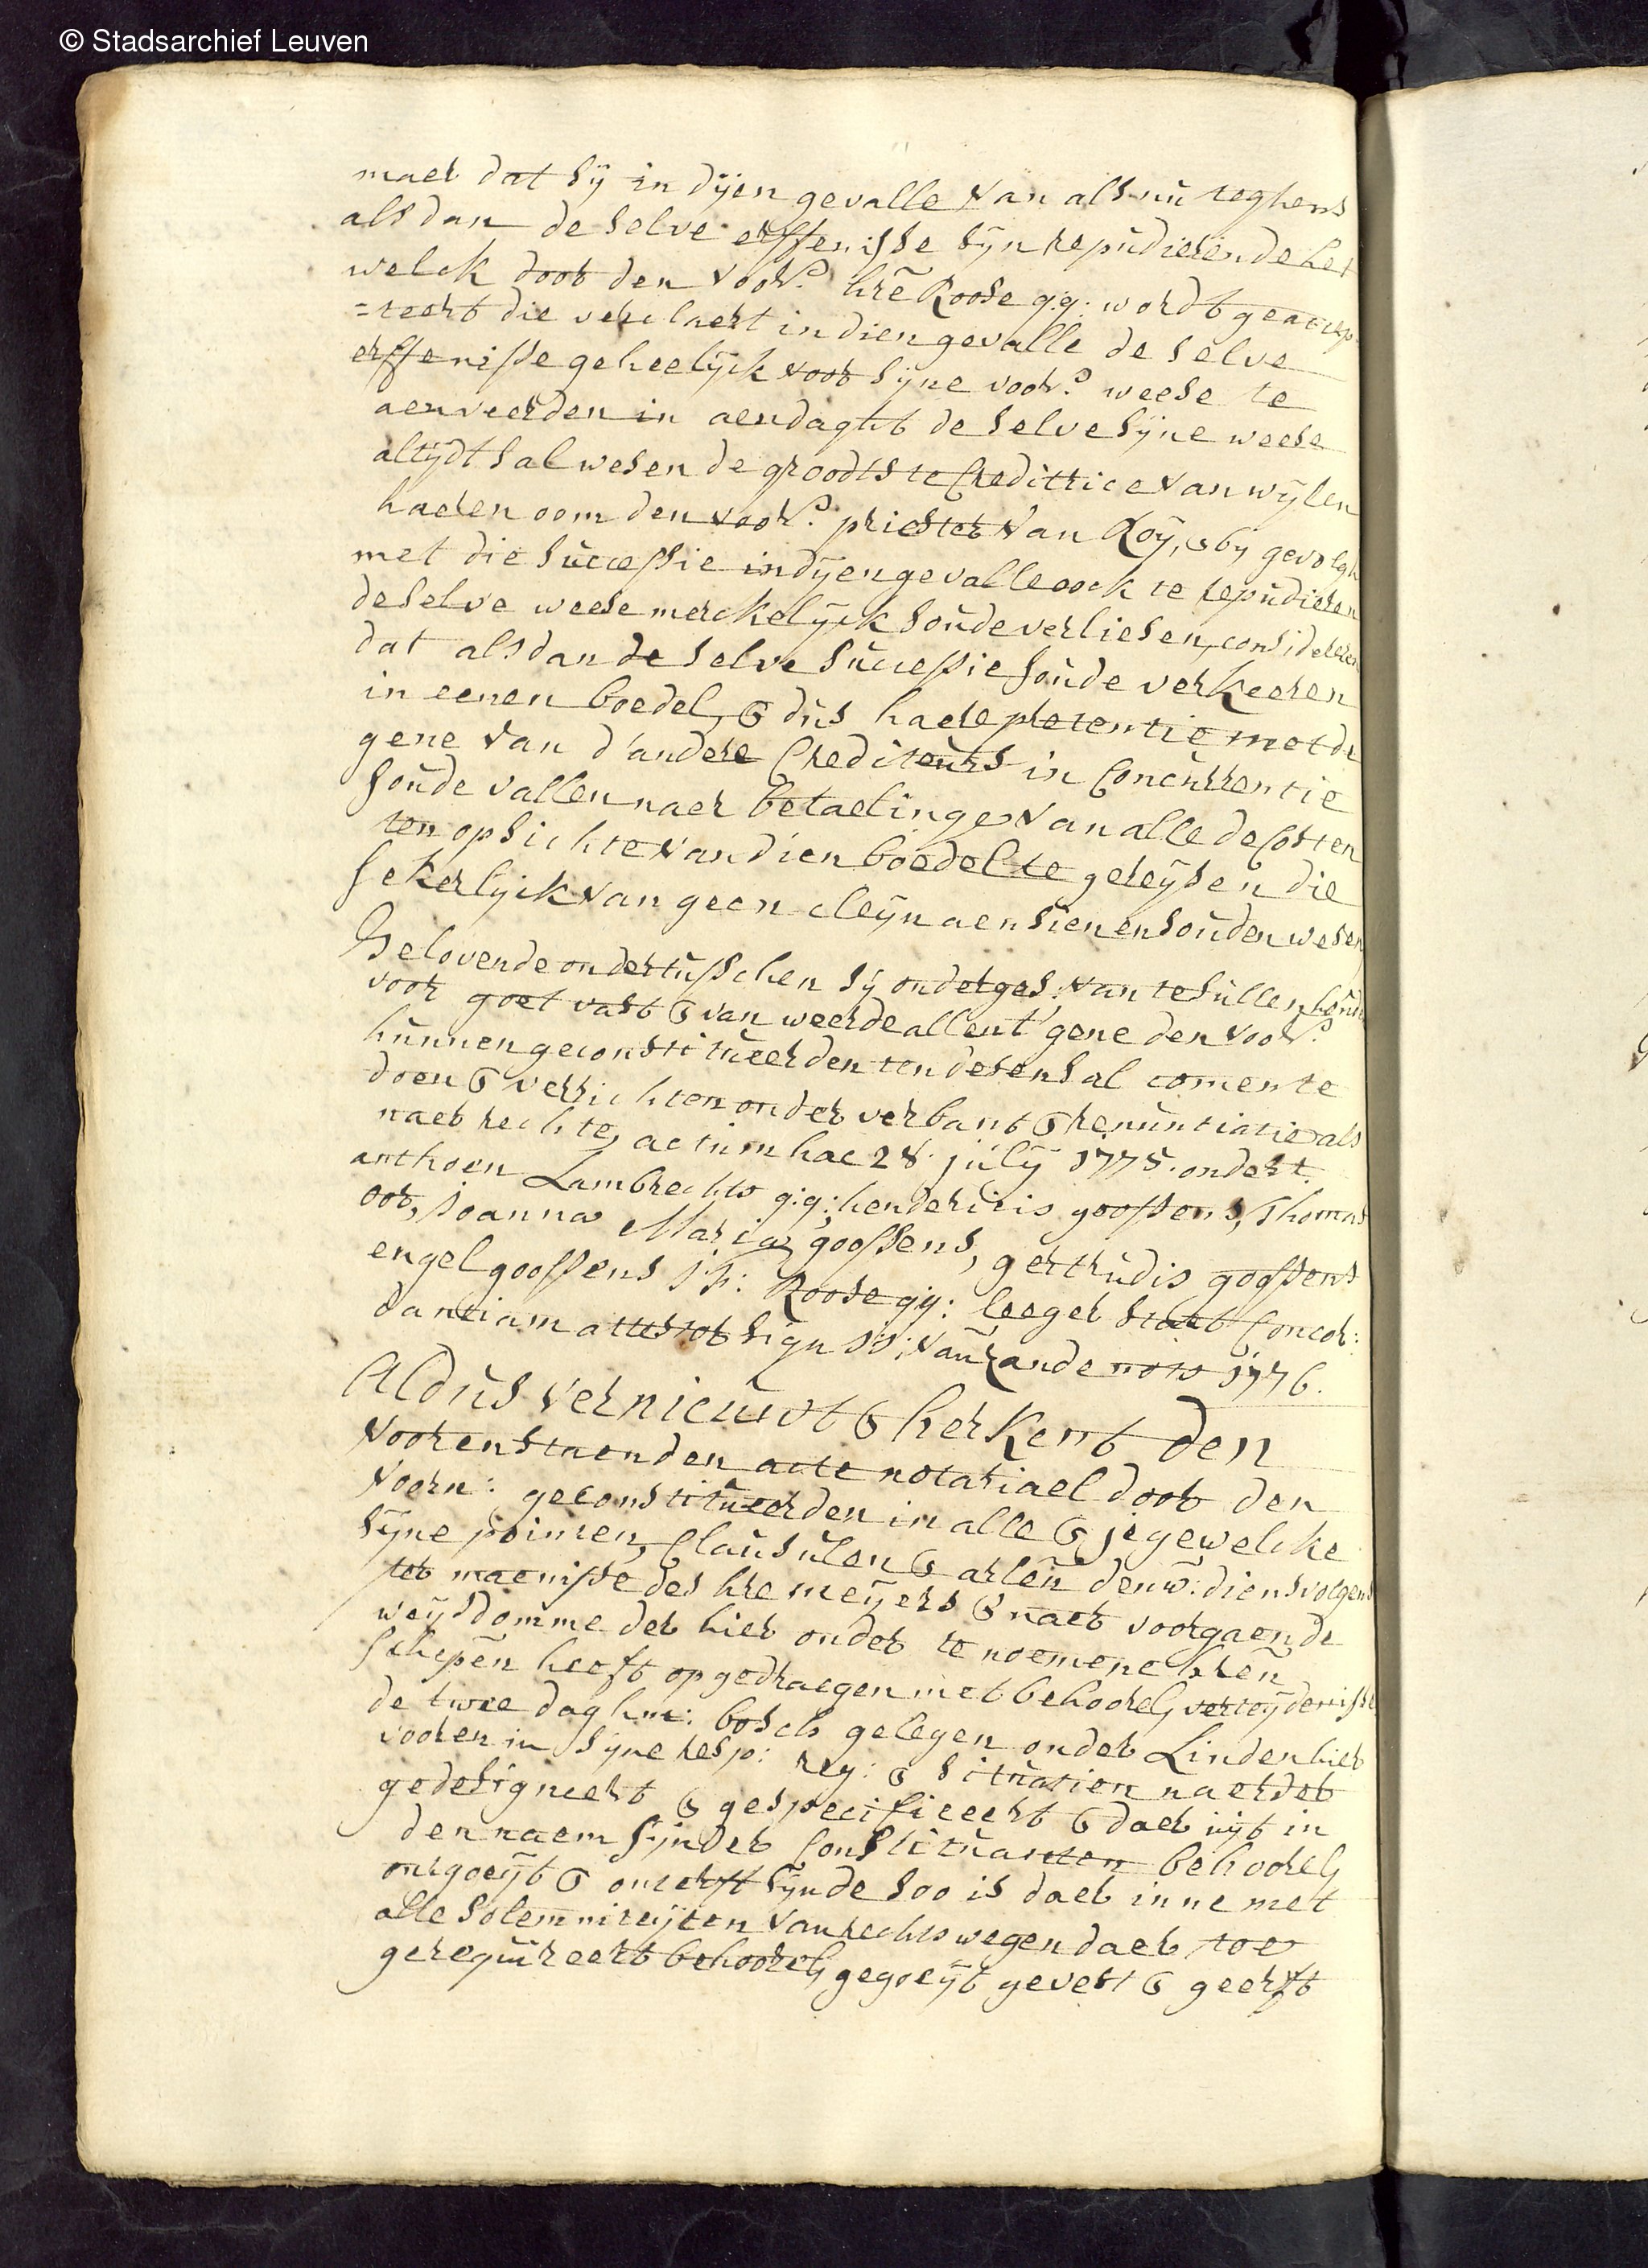 © Stadsarchief Leuven
maer dat sij in dijen gevalle van als nu teghens
als dan de selve erffenisse sijn repudierende het
welck door den voors. hre Roose q:q: wordt geaccep
=teert die verclaert in dien gevalle de selve
erffenisse geheelijck voor sijne voors. weese te
aenveerden in aendaght de selve sijne weese
altijdt sal wesen de grootste Creditrice van wijlen
haeren oom den voors. priester Van Roij, & by gevolgh
met die successie in dijen gevalle oock te repudieren
de selve weese merckelijck soude verliesen, considereren
dat als dan de selve successie soude verkeeren
in eenen boedel, & dus haere pretentie met de
gene van d'andere Crediteurs in Concurrentie
soude vallen naer betaelinge van alle de Costen
ten opsichte van dien boedel te gereysen die
sekerlijck van geen cleijn aensien en souden wesen
Gelovende ondertusschen sij onderges. van te sullen houden
voor goet vast & van weerde allen t'gene den voors.
hunnen geconstitueerden ten desen sal comen te
doen & verrichten onder verbant & renuntiatie als
naer rechte, actum hac 28 julij 1775. ondert.
anthoen Lambrechts q:q: hendericus goossens, Thomas
oor, joanna Maria goossens, gertrudis goossens
engel goossens J: F: Roose qq: leeger staet Concor:
dantiam attestor sign J: J: Van Zande nots 1776.
Aldus vernieuwt & herkent den
voorenstaenden acte notariael door den
voorn: geconstitueerden in alle & jegewelcke
sijne pointen, Clausulen & arlen denw: diensvolgens
ter maenisse des hre meyers & naer voorgaende
weijsdomme der hier onder te noemene hren
schepen heeft opgedraegen met behoorel, verteijdenisse
de twee daghm: bosch gelegen onder Linden hier
vooren in sijne resp: reg: & situatien naerder
gedesigneert & gespecificeert & daer uijt in
den naem sijnder Constituanten behoorel,
ontgoeijt & onterft sijnde soo is daer inne met
alle solemniteijten van rechts wegen daer toe
gerequireert behoorel, gegoeijt gevest & geerft